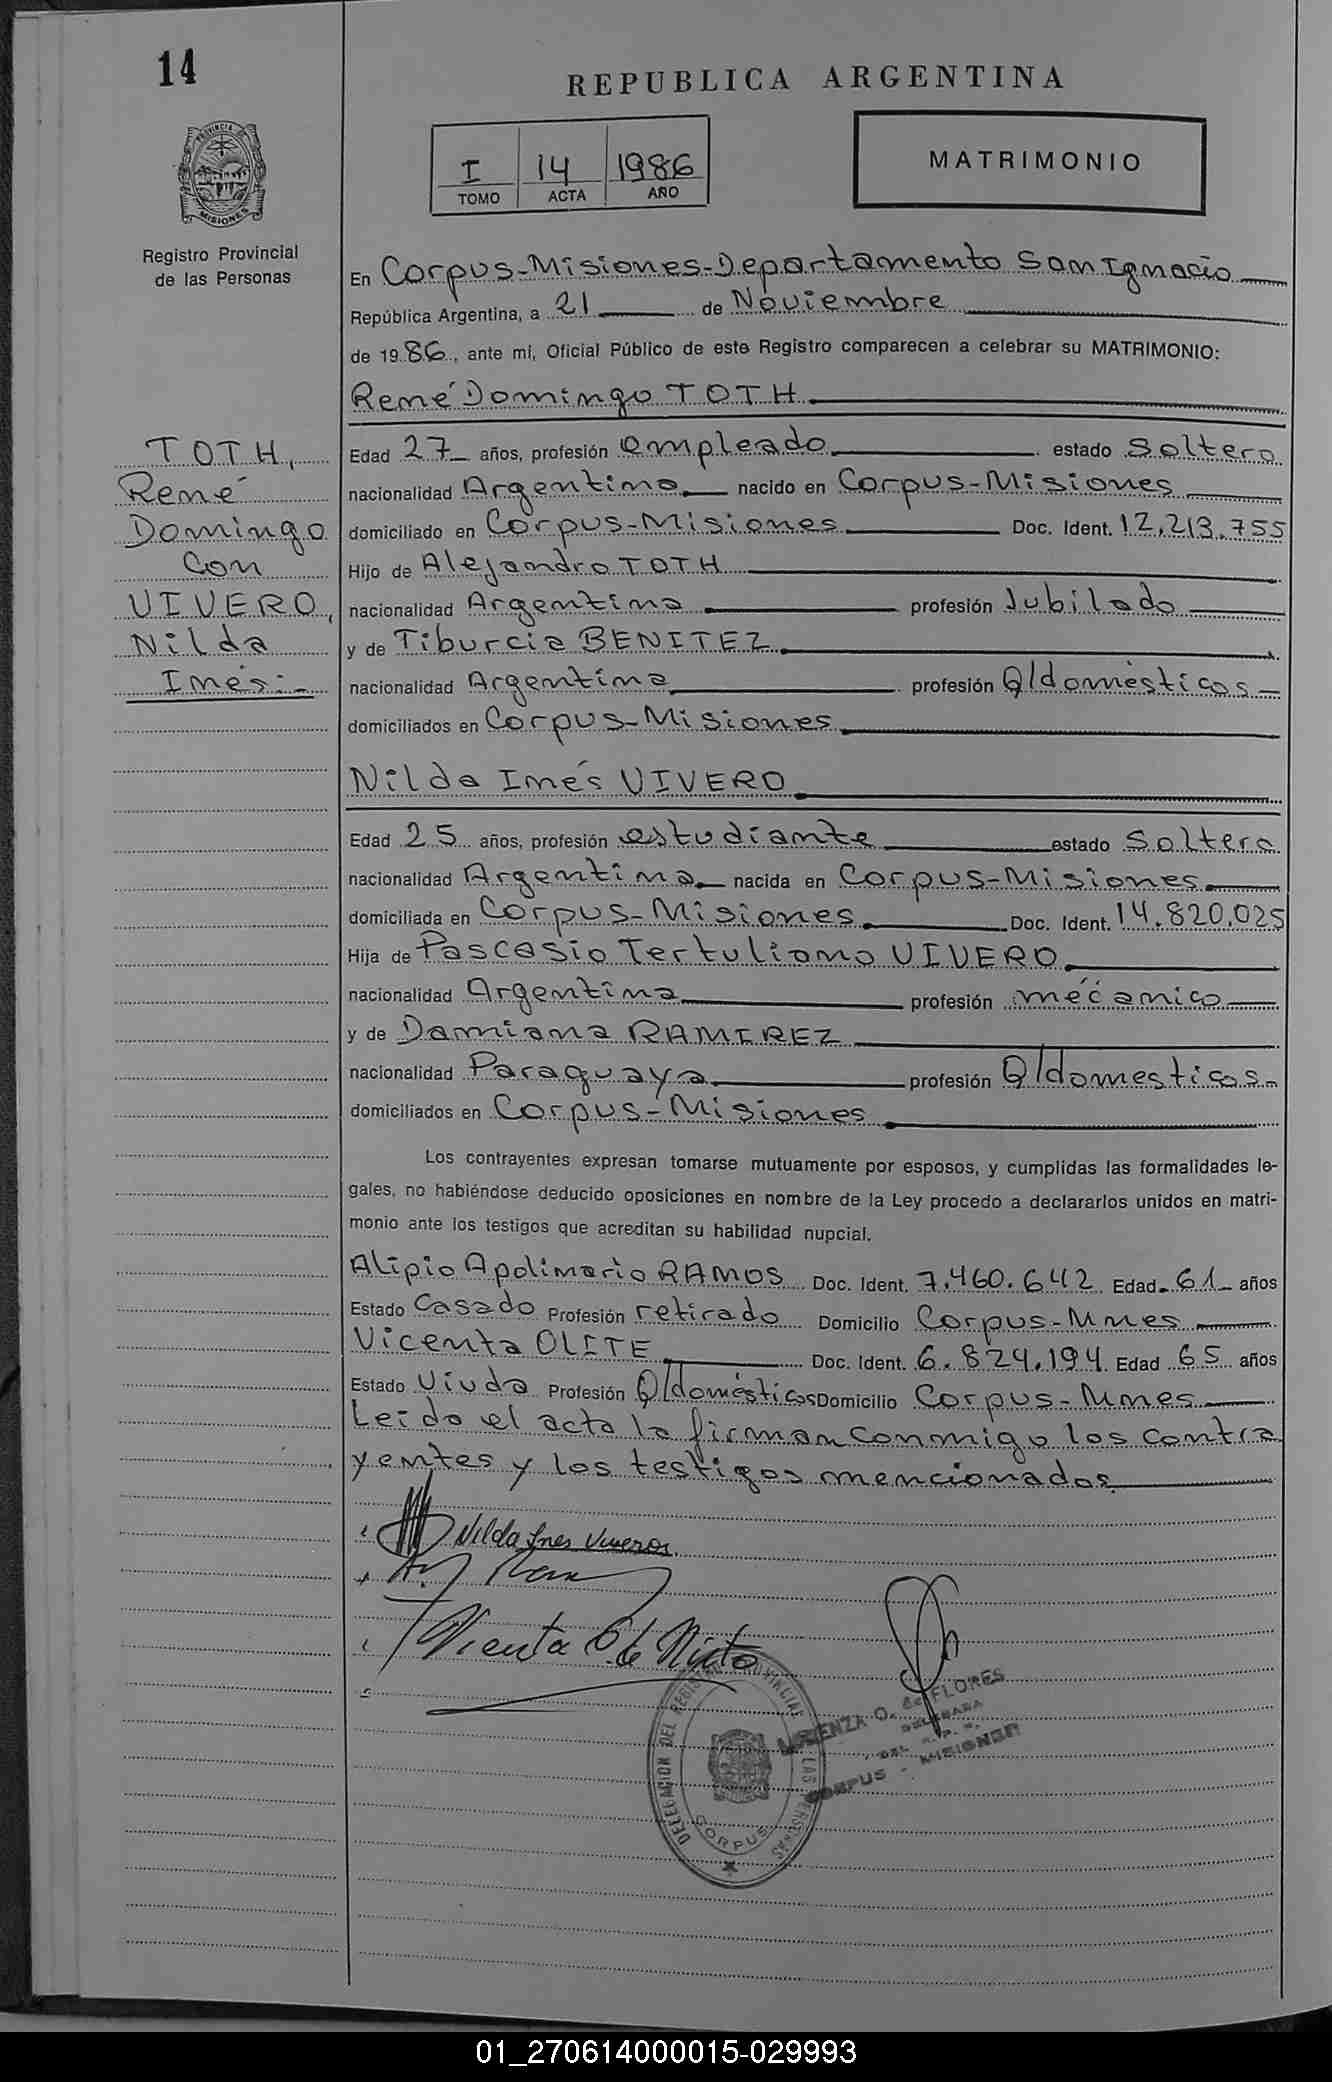 14
REPUBLICA ARGENTINA
I 14 1986
TOMO ACTA AÑO
MATRIMONIO
PROVINCIA DE
MISIONES
Registro Provincial
de las Personas
En Corpus-Misiones-Departamento San Ignacio
República Argentina, a 21 de Noviembre
de 1986, ante mi, Oficial Público de este Registro comparecen a celebrar su MATRIMONIO:
René Domingo TOTH
TOTH,
René
Domingo
Con
VIVERO,
Nilda
Inés:-
Edad 27 años, profesión empleado estado Soltero
nacionalidad Argentina nacido en Corpus-Misiones
domiciliado en Corpus-Misiones Doc. Ident. 12.213.755
Hijo de Alejandro TOTH
nacionalidad Argentina profesión Jubilado
y de Tiburcia BENITEZ
nacionalidad Argentina profesión Q/domésticos
domiciliados en Corpus-Misiones
Nilda Inés VIVERO
Edad 25 años, profesión estudiante estado Soltera
nacionalidad Argentina nacida en Corpus-Misiones
domiciliada en Corpus-Misiones Doc. Ident. 14.820.025
Hija de Pascasio Tertuliano VIVERO
nacionalidad Argentina profesión mecánico
y de Damiana RAMIREZ
nacionalidad Paraguaya profesión Q/domesticos
domiciliados en Corpus-Misiones
Los contrayentes expresan tomarse mutuamente por esposos, y cumplidas las formalidades le-
gales, no habiéndose deducido oposiciones en nombre de la Ley procedo a declararlos unidos en matri-
monio ante los testigos que acreditan su habilidad nupcial.
Alipio Apolinario RAMOS Doc. Ident. 7.460.642 Edad 61 años
Estado Casado Profesión retirado Domicilio Corpus-Mnes
Vicenta OLITE Doc. Ident. 6.824.194 Edad 65 años
Estado Viuda Profesión Q/domésticos Domicilio Corpus-Mnes
Leido el acta la firman conmigo los contra
yentes y los testigos mencionados
Nilda Ines Viveros
Vicenta O. de Nieto
DELEGACION DEL REGISTRO PROVINCIAL DE LAS PERSONAS
CORPUS
LORENZA O. de FLORES
DELEGADA
DEL R. P. P.
CORPUS - MISIONES
01_270614000015-029993